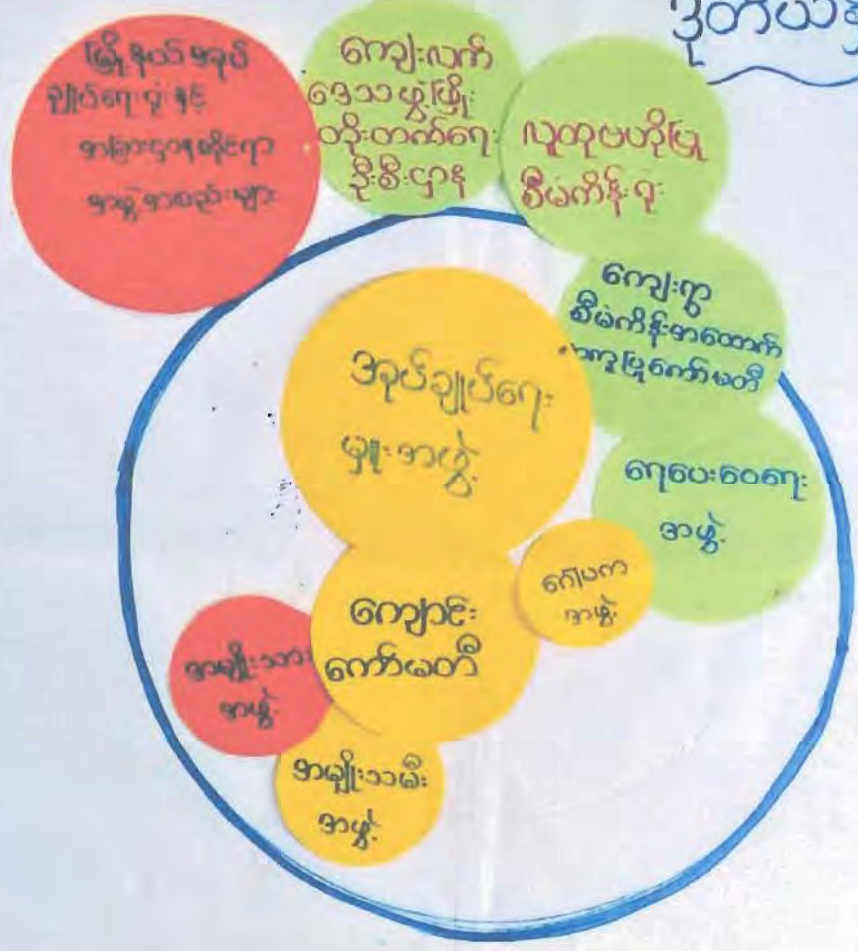 ဒုတိယ
မြို့နယ်အုပ်
ချုပ်ရေးရုံးနှင့်
အခြားဌာနဆိုင်ရာ
အဖွဲ့အစည်းများ
ကျေးလက်
ဒေသဖွံ့ဖြိုး
တိုးတက်ရေး
ဦးစီးဌာန
လူထုဗဟိုပြု
စီမံကိန်းရုံး
ကျေးရွာ
စီမံကိန်းအထောက်
အကူပြုကော်မတီ
အုပ်ချုပ်ရေး
မှူးအဖွဲ့
ရေပေးဝေရေး
အဖွဲ့
ဂေါပက
အဖွဲ့
ကျောင်း
ကော်မတီ
အမျိုးသား
အဖွဲ့
အမျိုးသမီး
အဖွဲ့